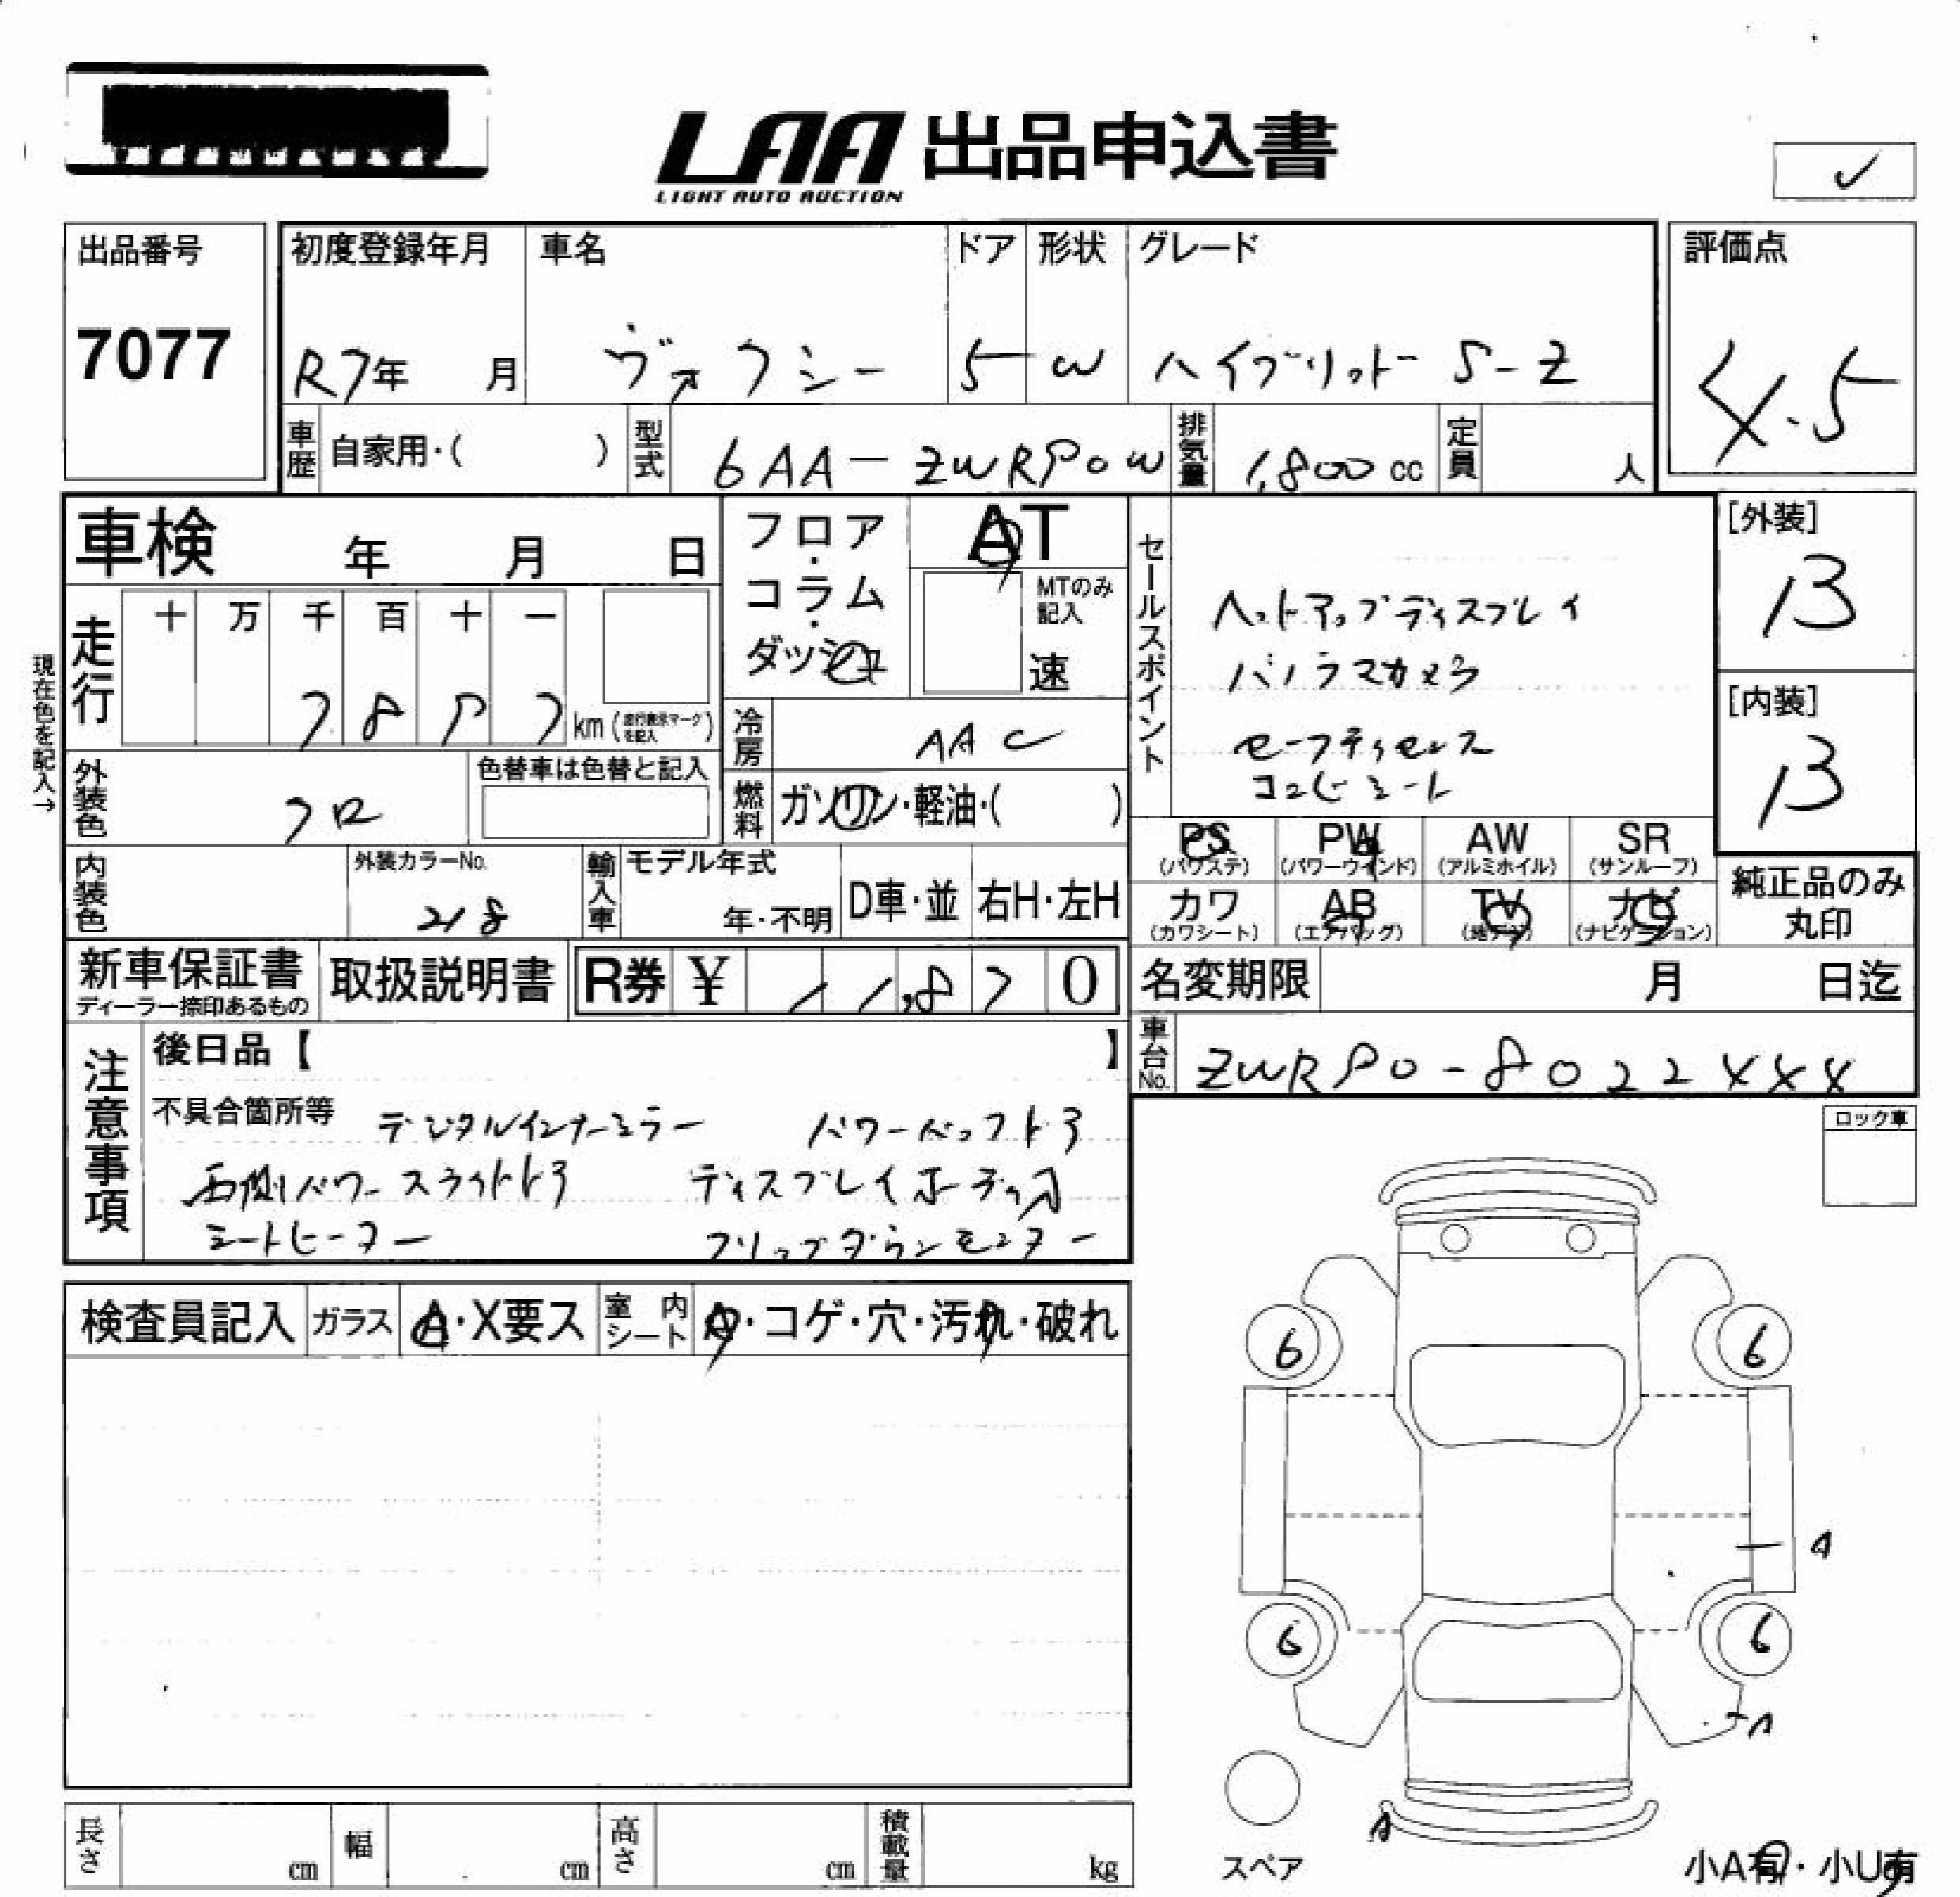 LAA 出品申込書
LIGHT AUTO AUCTION
✓
出品番号
7077
初度登録年月
R7年 月
車名
ヴォクシー
ドア
5
形状
W
グレード
ハイブリッド S-Z
評価点
4.5
車歴 自家用・( )
型式 6AA-ZWR90W
排気量 1,800 cc
定員 人
車検 年 月 日
フロア・コラム・ダッシュ
AT
MTのみ記入
速
現在色を記入→
走行
十 万 千 百 十 一
7 8 5 7 km (走行表示マークを記入)
冷房 AAC
燃料 ガソリン・軽油・( )
セールスポイント
ヘッドアップディスプレイ
パノラマカメラ
セーフティセンス
コンビシート
[外装]
B
[内装]
B
外装色 クロ
色替車は色替と記入
内装色
外装カラーNo.
218
輸入車
モデル年式
年・不明
D車・並
右H・左H
PS (パワステ)
PW (パワーウインド)
AW (アルミホイル)
SR (サンルーフ)
カワ (カワシート)
AB (エアバッグ)
TV (地デジ)
ナビ (ナビゲーション)
純正品のみ丸印
新車保証書
ディーラー捺印あるもの
取扱説明書
R券 ¥ 11,870
名変期限 月 日迄
車台No. ZWR90-8022XXX
注意事項
後日品【 】
不具合箇所等
デジタルインナーミラー パワーバックドア
両側パワースライドドア ディスプレイオーディオ
シートヒーター フリップダウンモニター
ロック車
検査員記入
ガラス A・X要ス
室内シート A・コゲ・穴・汚れ・破れ
6 6
A
6 6
A
A
スペア
小A有・小U有
長さ cm
幅 cm
高さ cm
積載量 kg